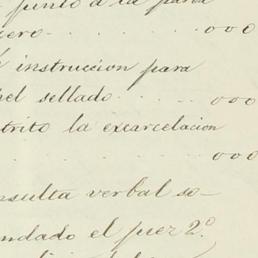 punto á la parla
ero . . . . . ooo
instruccion para
pel sellado . . . . ooo
trito la excarcelacion
. . . . . . ooo
nsulta verbal so-
ndado el juez 2.º